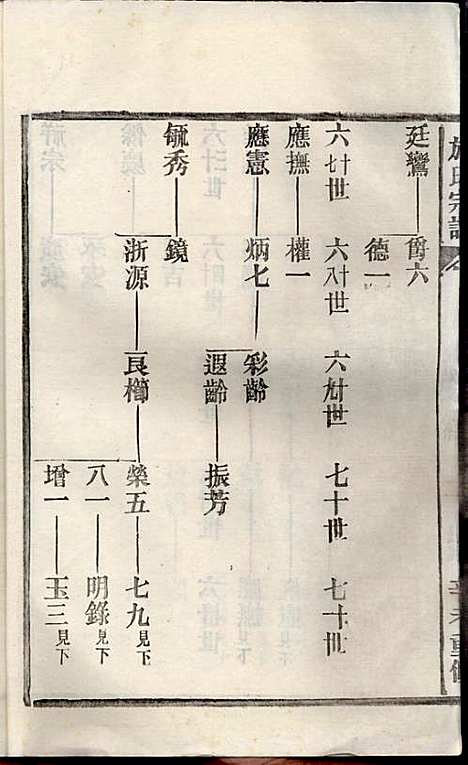 施氏宗譜
辛未重修
廷鸞 爵六
德一
六十七世 六十八世 六十九世 七十世 七十一世
應撫 權一
應憲 炳七 彩齡
遐齡 振芳
毓秀 鏡
浙源 良櫛 榮五 七九見下
八一 明錄見下
增一 玉三見下